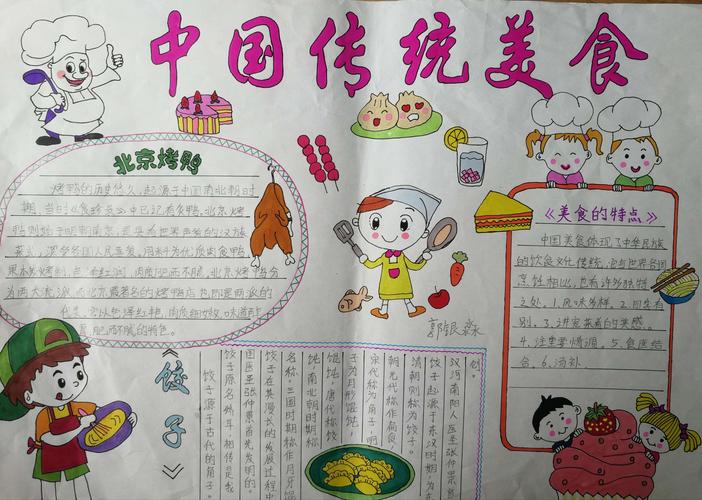 中国传统美食
北京烤鸭
烤鸭的历史悠久,起源于中国南北朝时
期,当时《食珍录》中已记有炙鸭,北京烤
鸭则始于明朝,它是具有世界声誉的汉族
菜式,深为各国人民喜爱,用料为优质肉食鸭
果木炭烤制,色泽红润,肉质肥而不腻。北京烤鸭分
为两大流派,而北京最著名的烤鸭店也即是两派的
代表。它以色泽红艳,肉质细嫩,味道醇
厚,肥而不腻的特色。
《美食的特点》
中国美食体现了中华民族
的饮食文化传统,它与世界各国
烹饪相比,也有许多独特
之处。1、风味多样。2、四季有
别。3、讲究菜肴的美感。
4、注重情调。5、食医结
合。6、汤补
《饺子》
饺子源于古代的角子。
饺子原名娇耳 相传是我
国医圣张仲景首先发明的。
饺子在其漫长的发展过程中
名称,三国时期称作月牙馄
饨,南北朝时期称
馄饨,唐代称饺
子为月形馄饨
宋代称为角子,明
朝元代称作扁食
清朝则称为饺子。
饺子起源于东汉时期,为东
汉河南阳人医圣张仲景首
创。